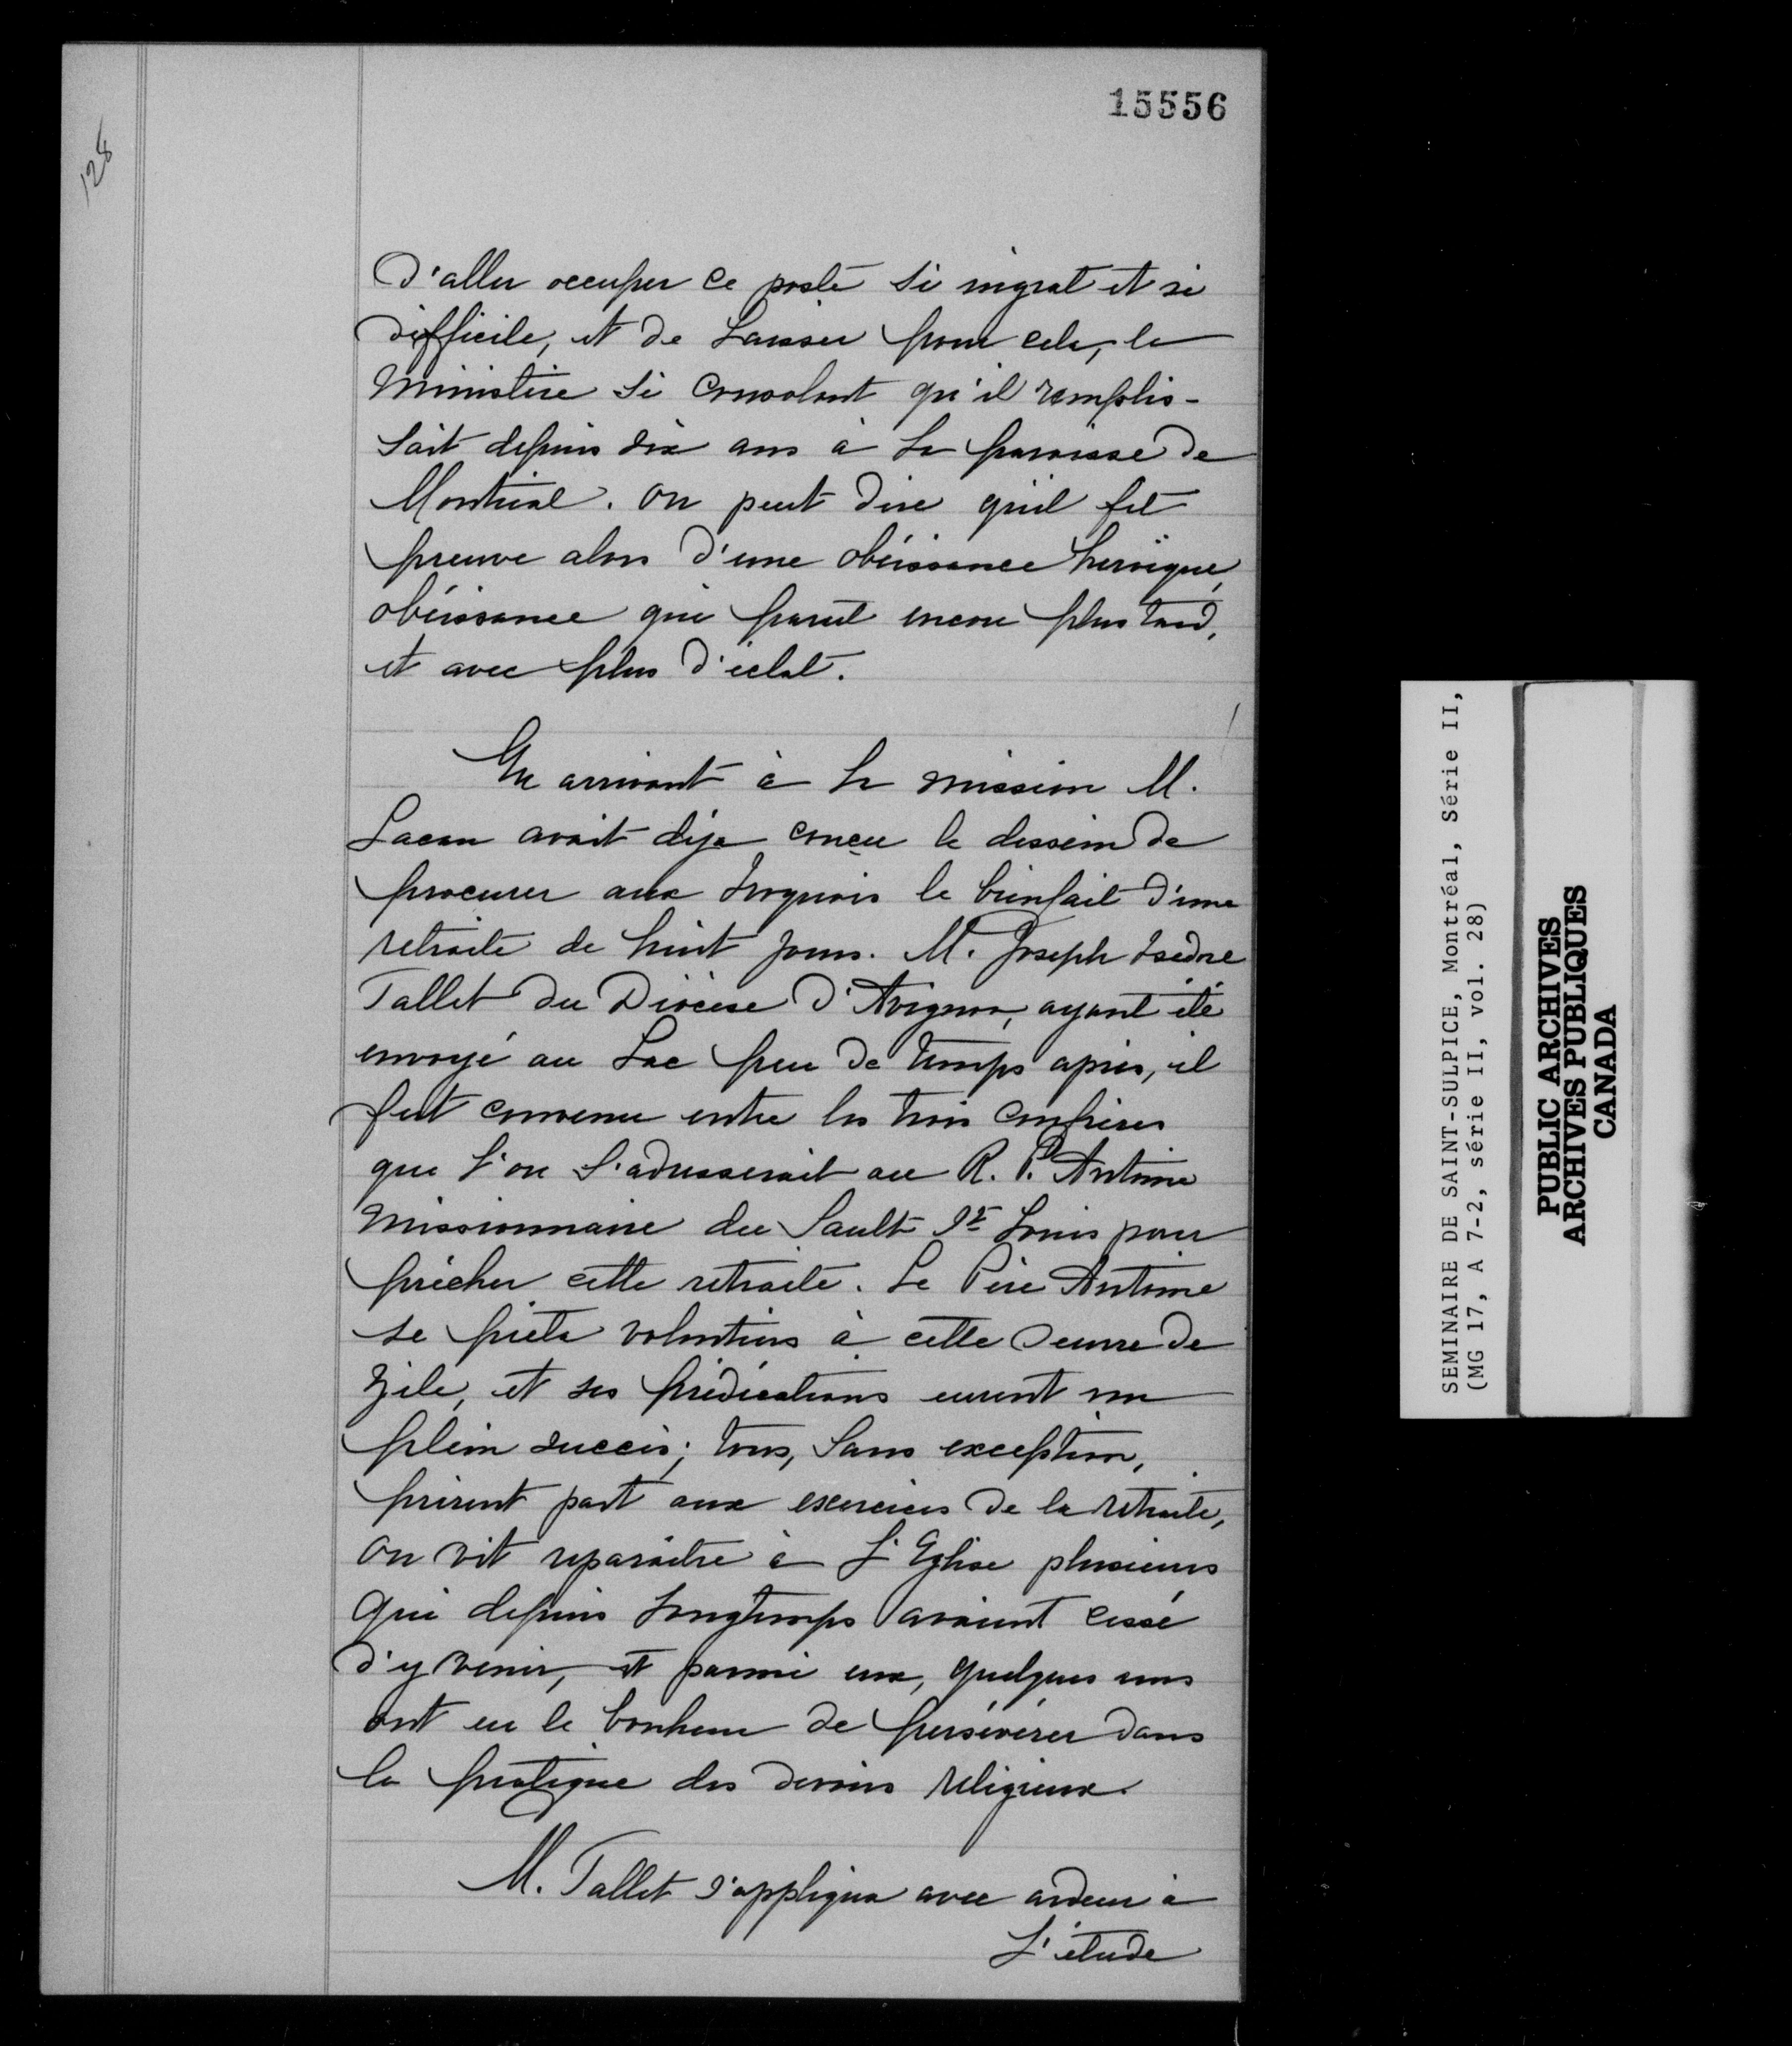 15556
128
d'aller occuper ce poste si ingrat et si
difficile, et de Laisser pour cela, le
Ministère si consolant qu'il remplis-
sait depuis dix ans à la paroisse de
Montréal. On peut dire qu'il fit
preuve alors d'une obéissance héroïque,
obéissance qui parut encore plus tard,
et avec plus d'éclat.
En arrivant à la mission M.
Lacan avait déjà conçu le dessein de
procurer aux Iroquois le bienfait d'une
retraite de huit jours. M. Joseph Isidore
Tallet du Diocèse d'Avignon, ayant été
envoyé au Lac peu de temps après, il
fut convenu entre les trois confrères
que l'on s'adresserait au R. P. Antoine
Missionnaire du Sault St Louis pour
prêcher cette retraite. Le Père Antoine
se prêta volontiers à cette Oeuvre de
zèle, et ses prédications eurent un
plein succès; tous, sans exception,
prirent part aux exercices de la retraite,
on vit reparaître à L'Eglise plusieurs
qui depuis longtemps avaient cessé
d'y venir, et parmi eux, quelques uns
ont eu le bonheur de persévérer dans
la pratique des devoirs religieux.
M. Tallet s'appliqua avec ardeur à
L'étude
SEMINAIRE DE SAINT-SULPICE, Montréal, Série II,
(MG 17, A 7-2, série II, vol. 28)
PUBLIC ARCHIVES
ARCHIVES PUBLIQUES
CANADA